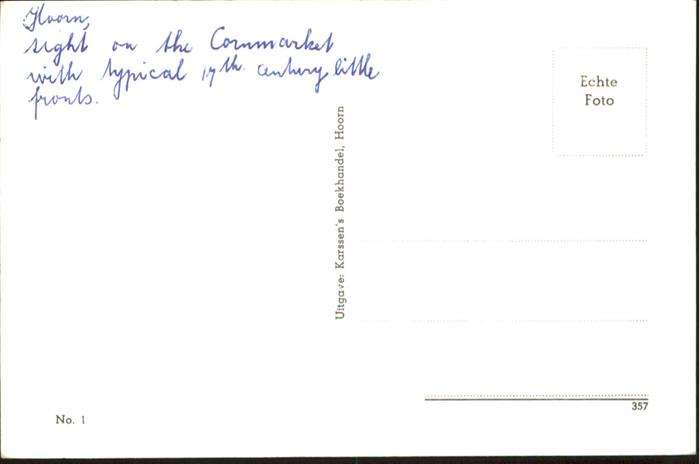 Hoorn,
sight on the Cornmarket
with typical 17th. century little
fronts.
Echte
Foto
Uitgave: Karssen's Boekhandel, Hoorn
357
No. 1